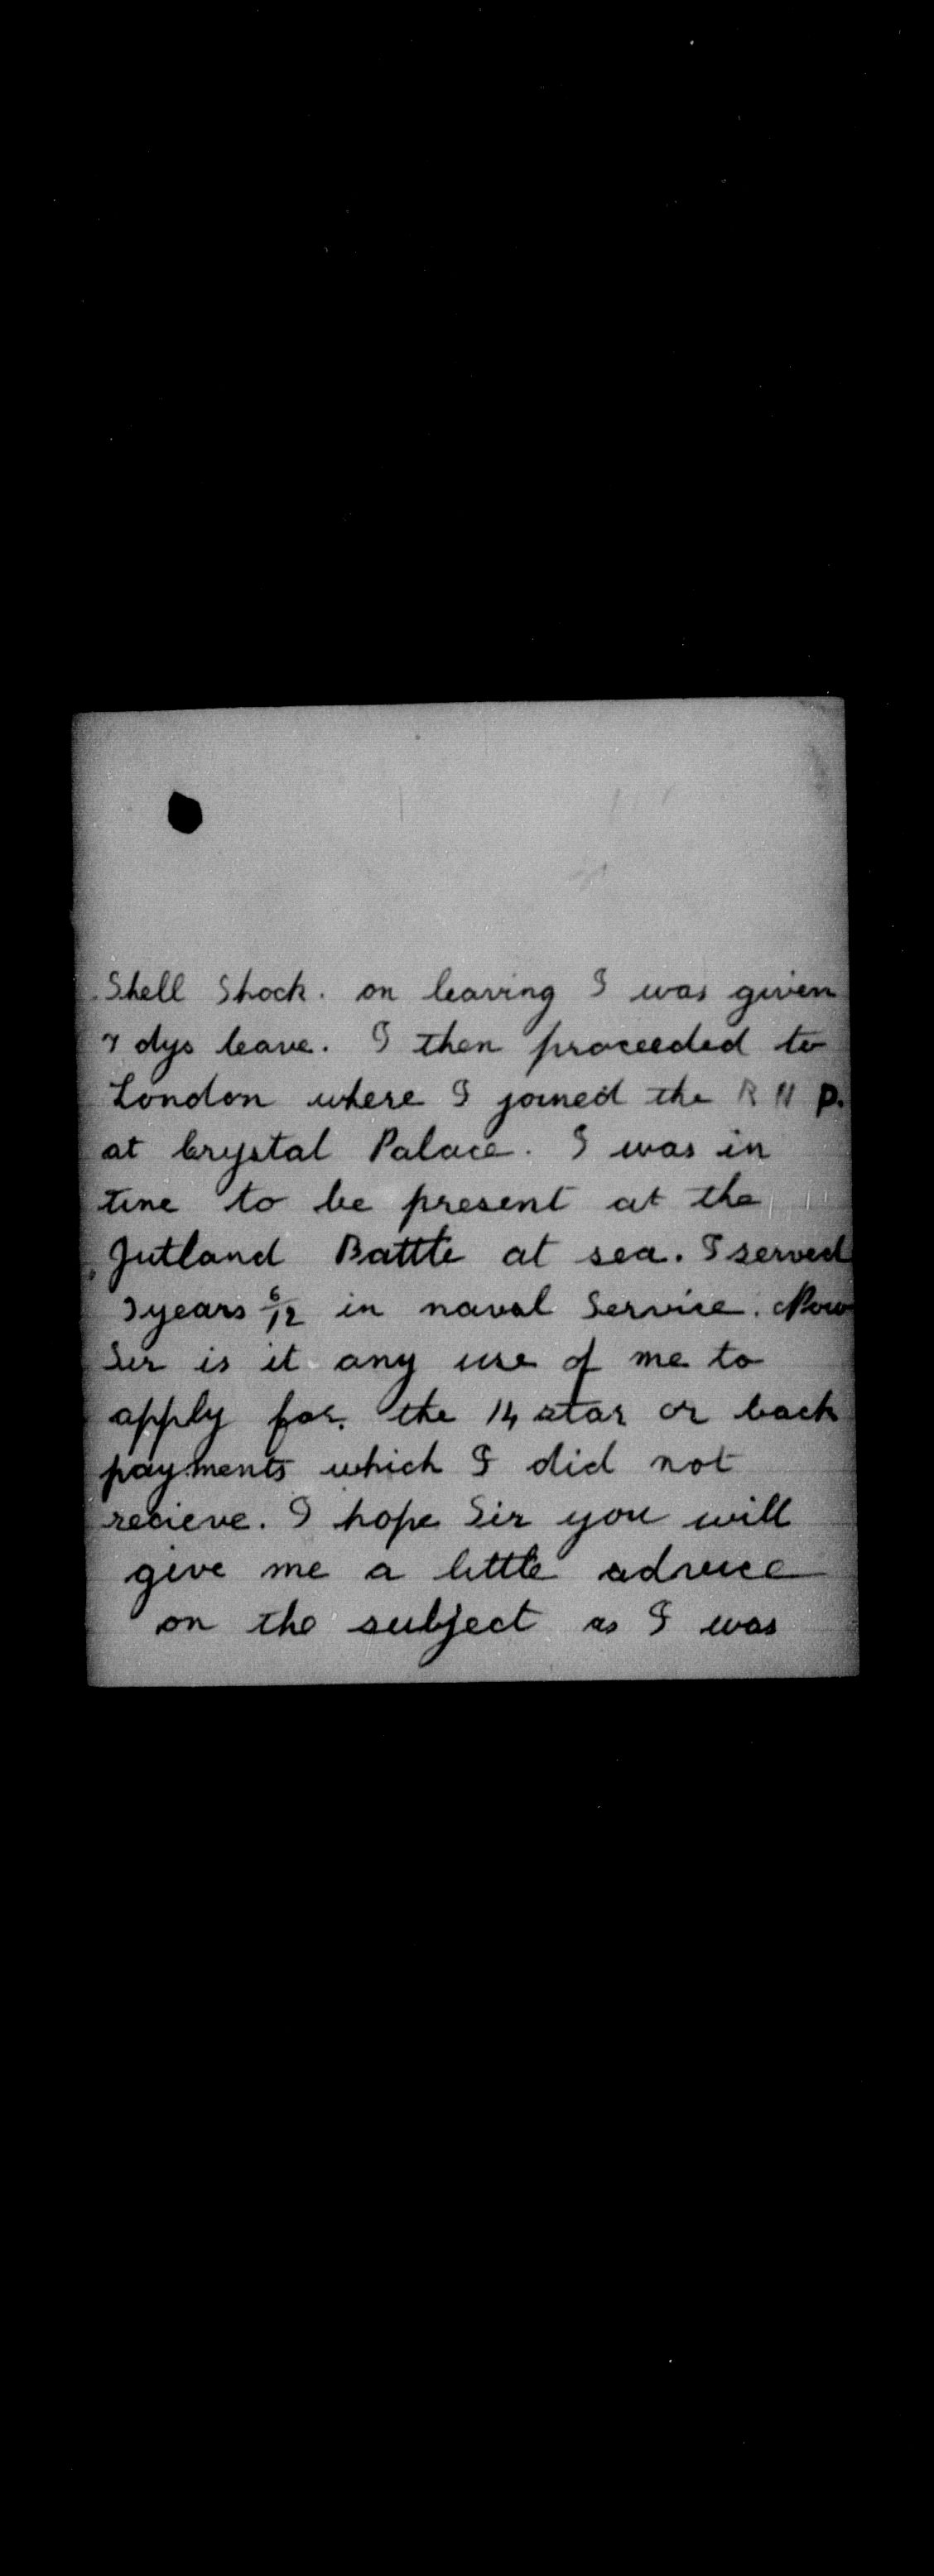 Shell Shock. on leaving I was given
7 dys leave. I then proceeded to
London where I joined the R N D.
at Crystal Palace. I was in
time to be present at the
Jutland Battle at sea. I served
3 years 6/12 in naval Service. Now
Sir is it any use of me to
apply for. the 14 star or back
payments which I did not
recieve. I hope Sir you will
give me a little advice
on the subject as I was